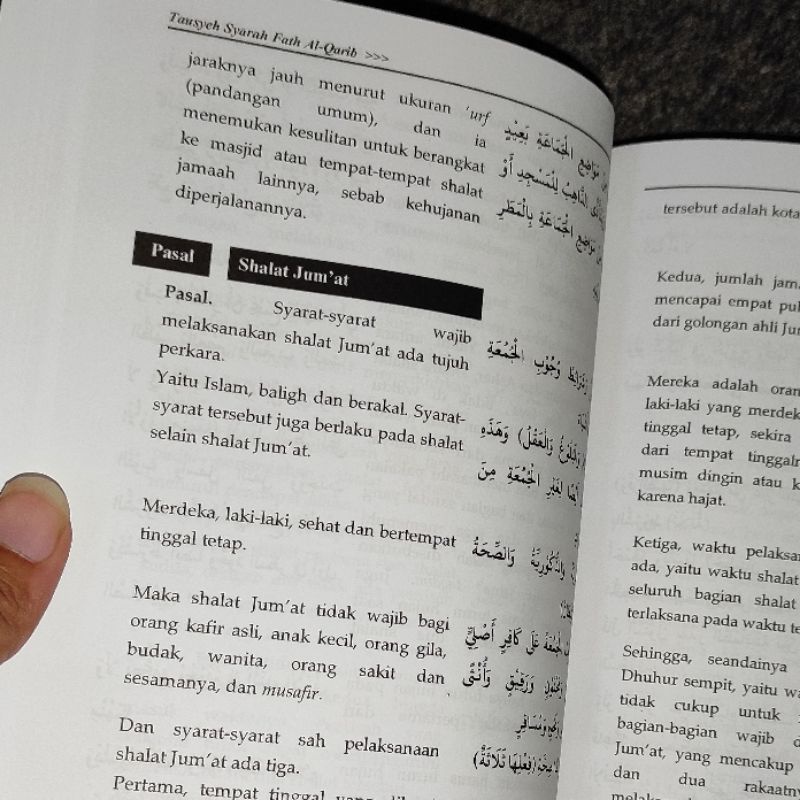 Tausyeh Syarah Fath Al-Qarib >>>
jaraknya jauh menurut ukuran 'urf
(pandangan umum), dan ia
menemukan kesulitan untuk berangkat
ke masjid atau tempat-tempat shalat
jamaah lainnya, sebab kehujanan
diperjalanannya.
مَوَاضِعِ الْجَمَاعَةِ بَعِيْدٍ
الذَّاهِبُ لِلْمَسْجِدِ أَوْ
مَوَاضِعِ الْجَمَاعَةِ بِالْمَطَرِ
Pasal
Shalat Jum'at
Pasal. Syarat-syarat wajib
melaksanakan shalat Jum'at ada tujuh
perkara.
وُجُوْبِ الْجُمُعَةِ
Yaitu Islam, baligh dan berakal. Syarat-
syarat tersebut juga berlaku pada shalat
selain shalat Jum'at.
وَالْبُلُوْغُ وَالْعَقْلُ) وَهَذِهِ
أَيْضًا لِغَيْرِ الْجُمُعَةِ مِنَ
Merdeka, laki-laki, sehat dan bertempat
tinggal tetap.
وَالذُّكُوْرِيَّةُ وَالصِّحَّةُ
Maka shalat Jum'at tidak wajib bagi
orang kafir asli, anak kecil, orang gila,
budak, wanita, orang sakit dan
sesamanya, dan musafir.
الْجُمُعَةُ عَلَى كَافِرٍ أَصْلِيٍّ
وَرَقِيْقٍ وَأُنْثَى
وَمُسَافِرٍ
Dan syarat-syarat sah pelaksanaan
shalat Jum'at ada tiga.
(فِعْلِهَا ثَلَاثَةٌ)
Pertama, tempat tinggal yang
tersebut adalah kota
Kedua, jumlah jam
mencapai empat pul
dari golongan ahli Ju
Mereka adalah oran
laki-laki yang merdek
tinggal tetap, sekira
dari tempat tinggaln
musim dingin atau k
karena hajat.
Ketiga, waktu pelaksa
ada, yaitu waktu shalat
seluruh bagian shalat
terlaksana pada waktu te
Sehingga, seandainya
Dhuhur sempit, yaitu wa
tidak cukup untuk
bagian-bagian wajib d
Jum'at, yang mencakup
dan dua rakaatn